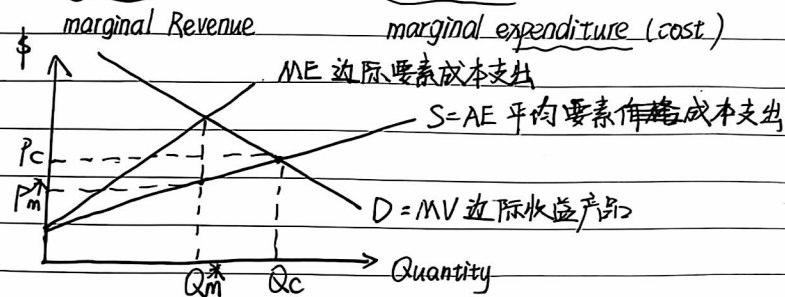 marginal Revenue marginal expenditure (cost)
$
ME 边际要素成本支出
S=AE 平均要素成本支出
Pc
Pm*
D=MV 边际收益产品
Qm* Qc Quantity